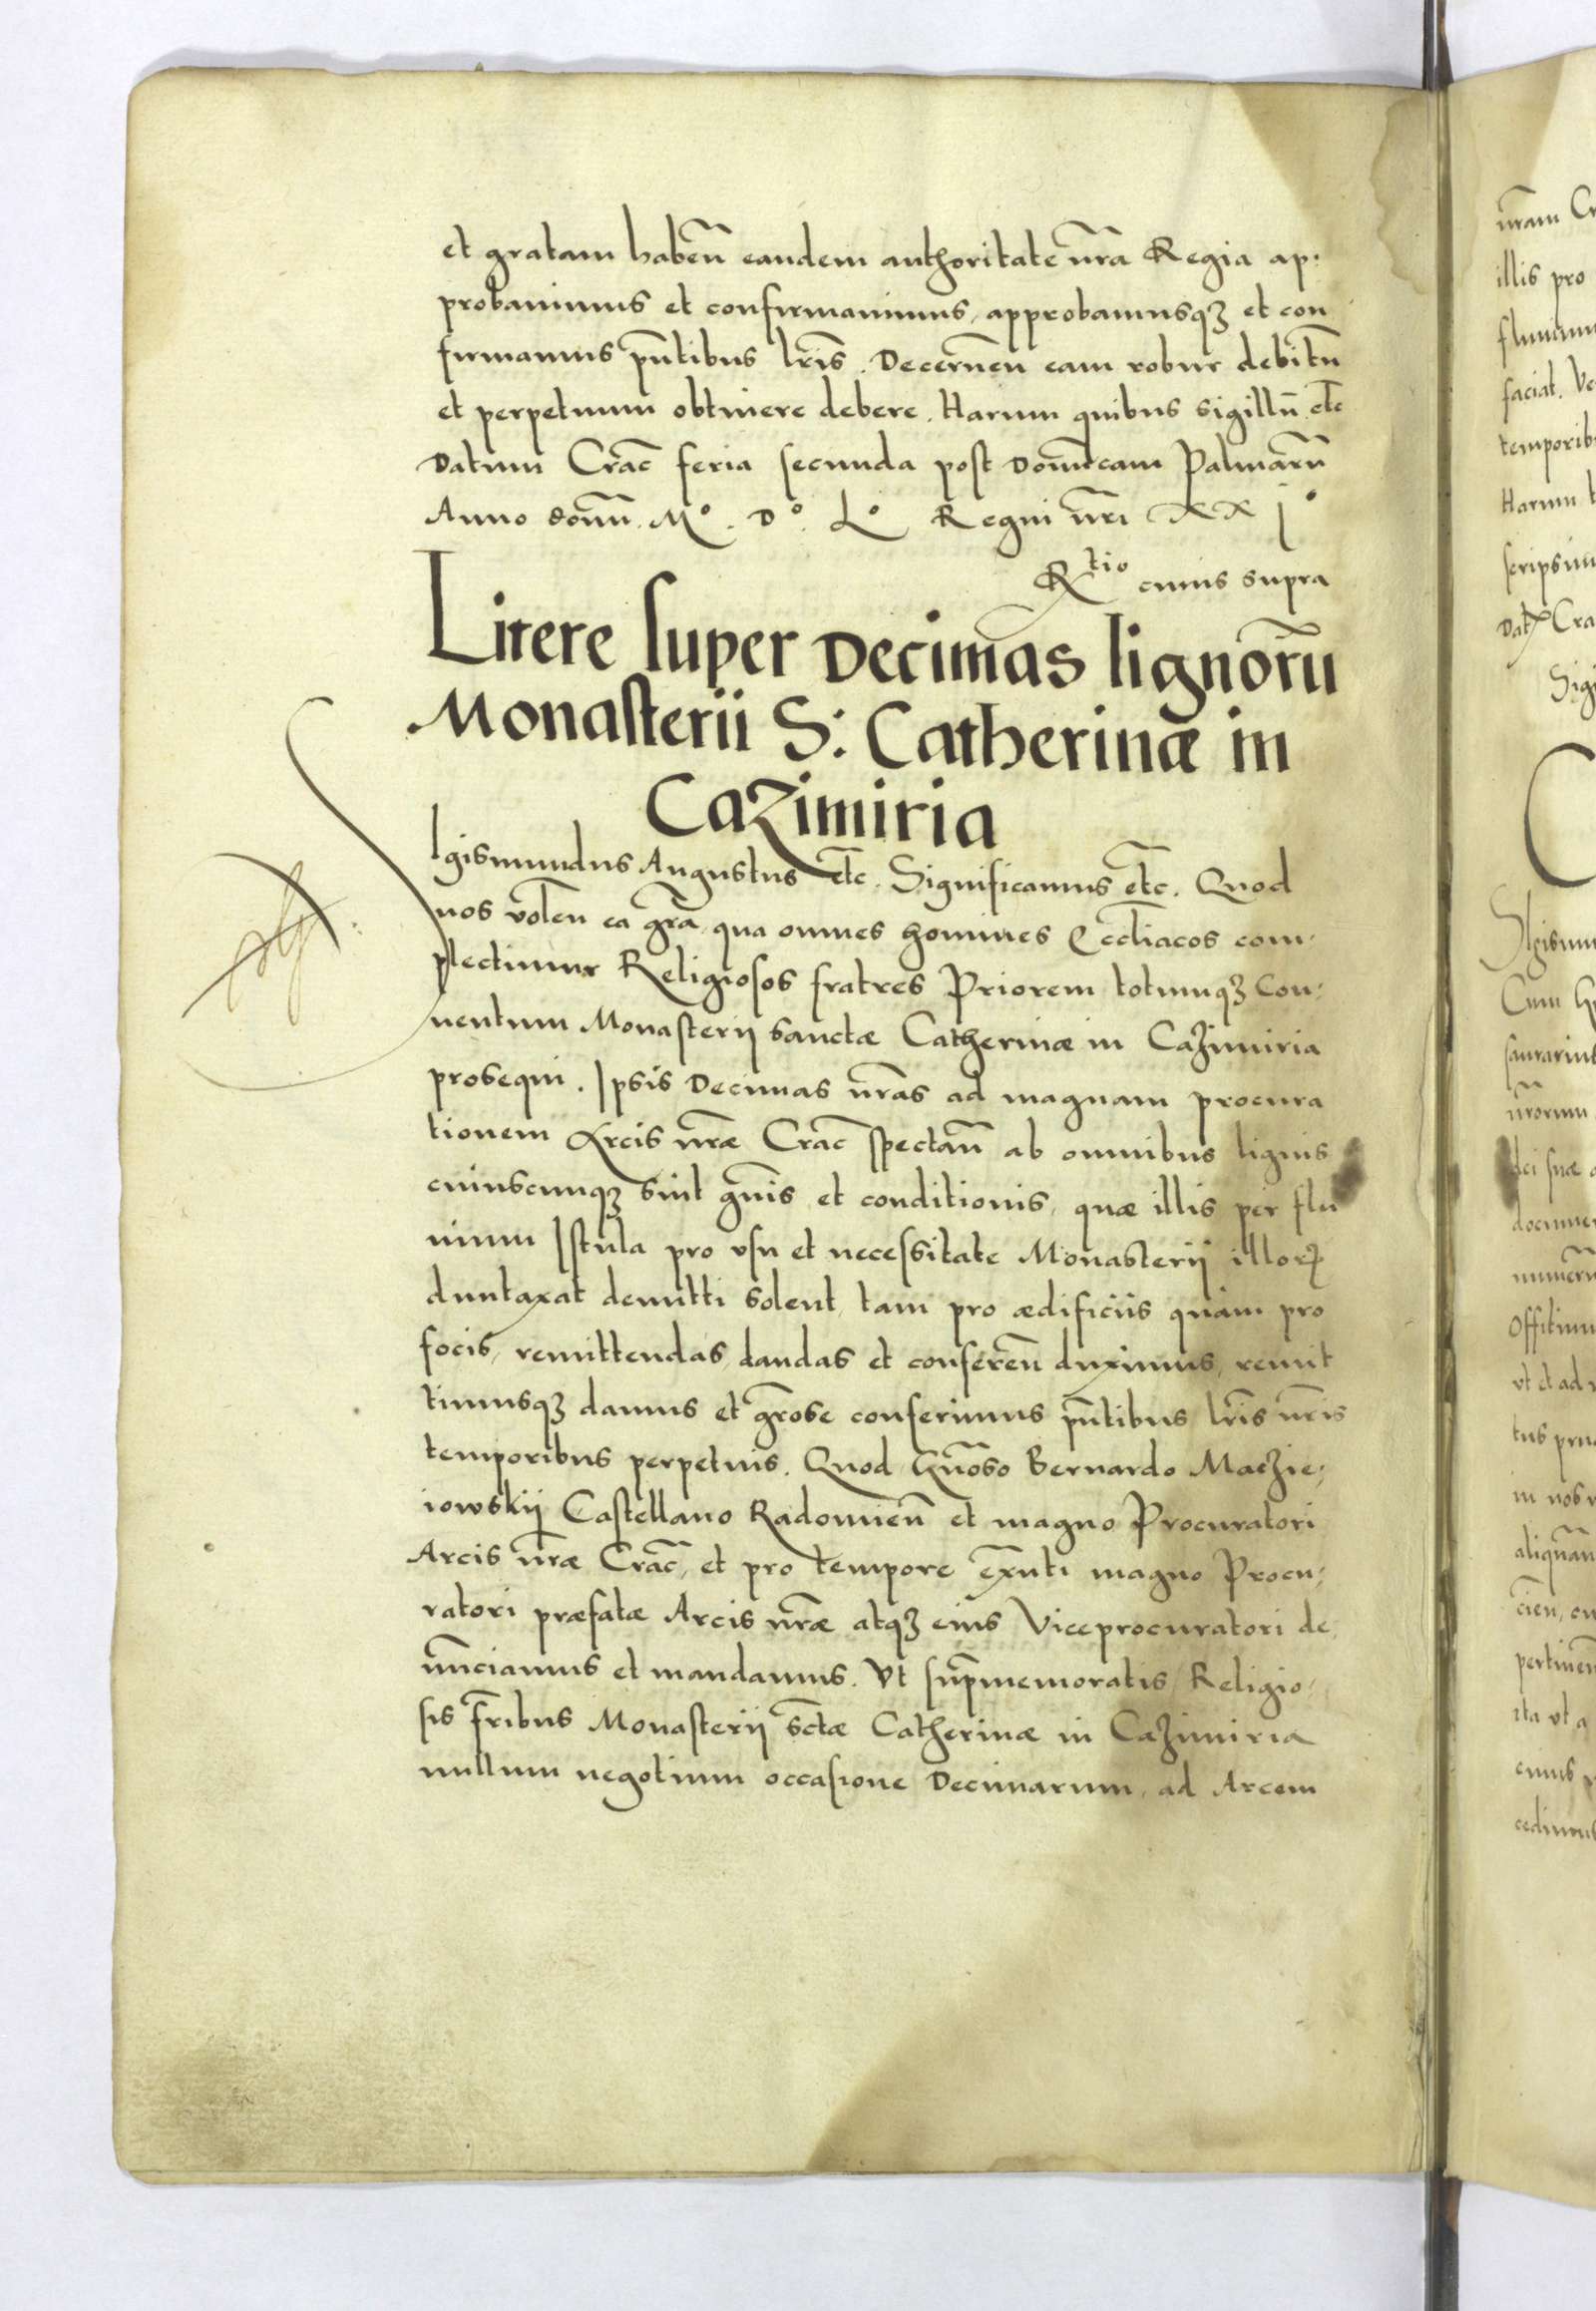 et gratam habeñ eandem authoritate nr̃a Regia ap:
probauimus et confirmauimus, approbamusqʒ et con
firmamus pñtibus lr̃is. Decerneñ eam robur debitũ
et perpetuum obtinere debere. Harum quibus sigillũ etc̃
Datum Crac̃ feria secunda post Dominicam Palmarũ
Anno domñ. Mº. Dº. Lº Regni nr̃i XXjº
Rtio cuius supra
Litere super Decimas lignorũ
Monasterii S: Catherinæ in
Cazimiria
SIgismundus Augustus etc̃. Significamus etc̃. Quod
nos voleñ ea gr̃a, qua omnes homines Eccl̃iacos com:
plectimur Religiosos fratres Priorem totumqʒ Con:
uentum Monasterij sanctæ Catherinæ in Cazimiria
prosequi. Ipsis Decimas nr̃as ad magnam procura
tionem Arcis nr̃æ Crac̃ spectañ ab omnibus lignis
cuiuscunqʒ sint gñis et conditionis, quæ illis per flu
uium Istula pro vsu et necessitate Monasterij illorꝝ
duntaxat demitti solent, tam pro ædificiis quam pro
focis, remittendas, dandas et confereñ duximus, remit
timusqʒ damus et gr̃ose conferimus pñtibus lr̃is nr̃is
temporibus perpetuis. Quod Gñoso Bernardo Maczie:
iowskij Castellano Radomieñ et magno Procuratori
Arcis nr̃æ Crac̃, et pro tempore ex̃nti magno Procu:
ratori præfatæ Arcis nr̃æ atqʒ eius Viceprocuratori de
nũnciamus et mandamus. Vt sup̃memoratis Religio:
sis fr̃ibus Monasterij sctæ Catherinæ in Cazimiria
nullum negotium occasione Decimarum, ad Arcem
nr̃am
illis pro
fluuium
faciat.
Harum